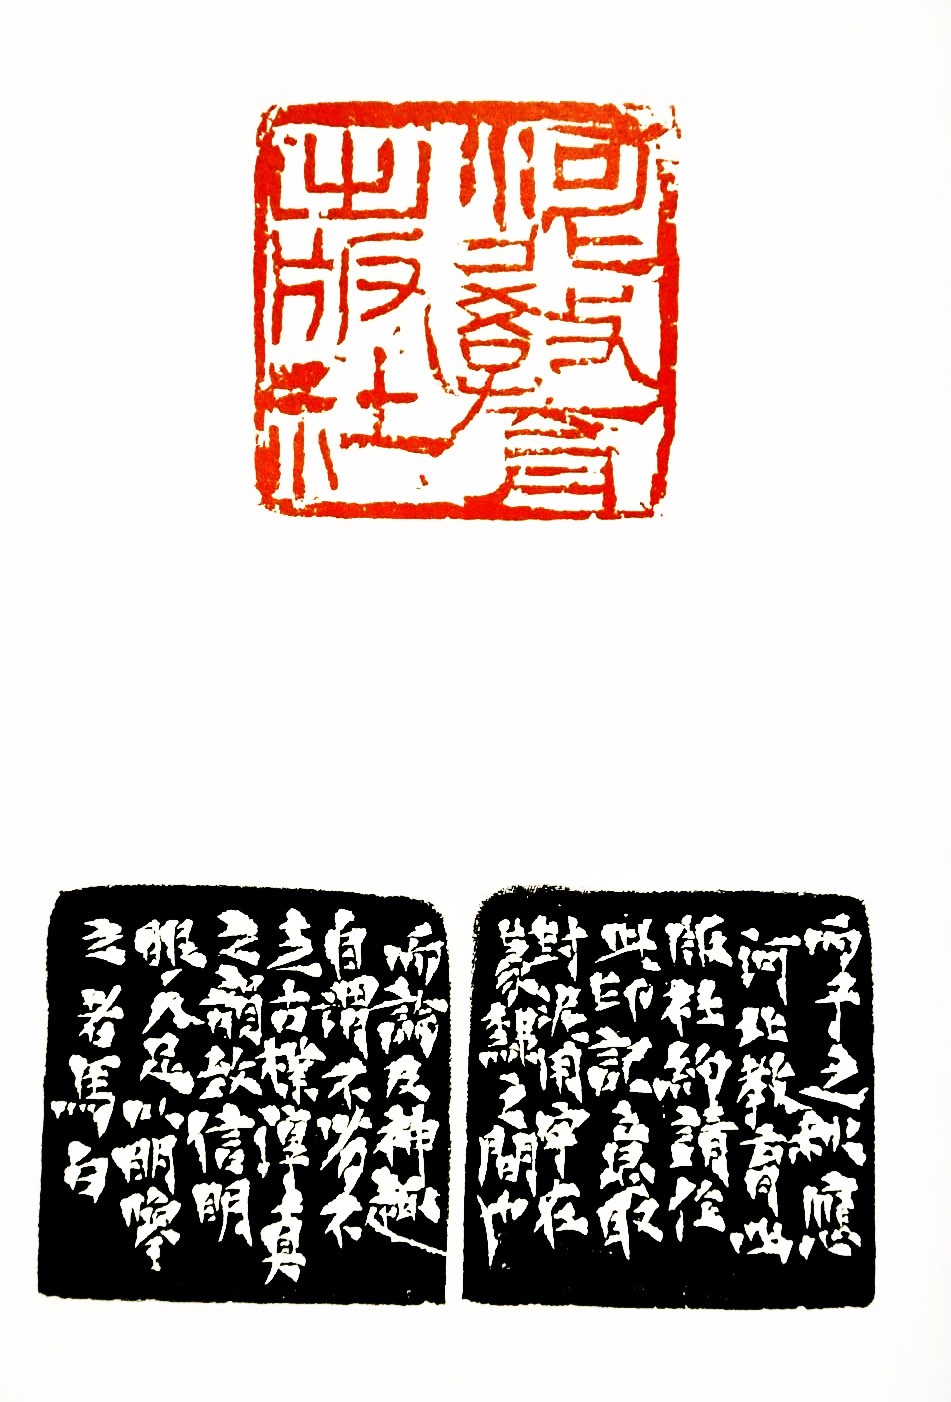 河北教育
出版社
丙子之秋應
河北教育出
版社約請作
此印記意取
封泥用字在
篆隸之間也
而論及神趣
自謂不
古樸淳真
之韻故信明
眼人足以明鑒
之 若馬白